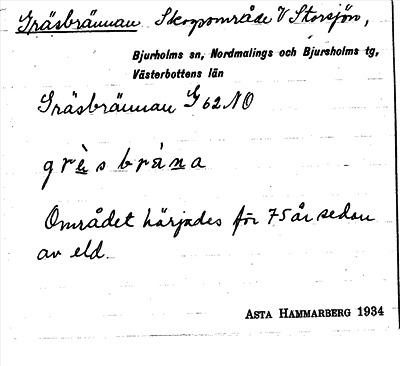 Gräsbrännan Skogsområde V Storsjön,
Bjurholms sn, Nordmalings och Bjurholms tg,
Västerbottens län
Gräsbrännan G 62 NO
grès bràna
Området härjades för 75 år sedan
av eld.
ASTA HAMMARBERG 1934